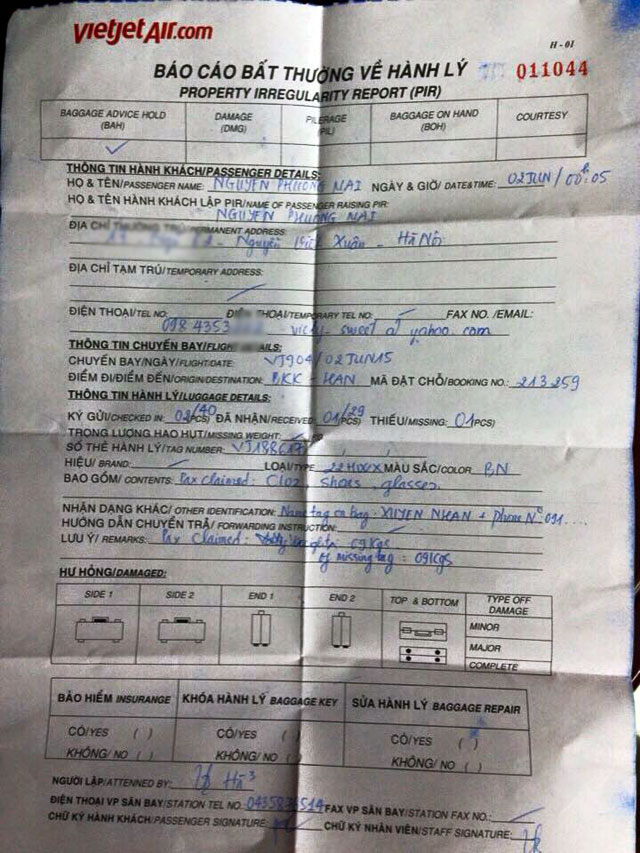 vietjetAir.com
H - 01
BÁO CÁO BẤT THƯỜNG VỀ HÀNH LÝ 011044
PROPERTY IRREGULARITY REPORT (PIR)
BAGGAGE ADVICE HOLD (BAH) DAMAGE (DMG) PILERAGE (PIL) BAGGAGE ON HAND (BOH) COURTESY
✓
THÔNG TIN HÀNH KHÁCH/PASSENGER DETAILS:
HỌ & TÊN/PASSENGER NAME: NGUYEN PHUONG MAI NGÀY & GIỜ/ DATE&TIME: 02JUN / 00h:05
HỌ & TÊN HÀNH KHÁCH LẬP PIR/NAME OF PASSENGER RAISING PIR:
NGUYEN PHUONG MAI
ĐỊA CHỈ THƯỜNG TRÚ/PERMANENT ADDRESS:
Nguyễn Xuân - Hà Nội
ĐỊA CHỈ TẠM TRÚ/TEMPORARY ADDRESS:
ĐIỆN THOẠI/TEL NO: ĐIỆN THOẠI/TEMPORARY TEL NO: FAX NO. /EMAIL:
098 4353 sweet at yahoo.com
THÔNG TIN CHUYẾN BAY/FLIGHT DETAILS:
CHUYẾN BAY/NGÀY/FLIGHT/DATE: VJ904 / 02JUN15
ĐIỂM ĐI/ĐIỂM ĐẾN/ORIGIN/DESTINATION: BKK - HAN MÃ ĐẶT CHỖ/BOOKING NO.: 213259
THÔNG TIN HÀNH LÝ/LUGGAGE DETAILS:
KÝ GỬI/CHECKED IN: 02/40 PCS) ĐÃ NHẬN/RECEIVED: 01/29 PCS) THIẾU/MISSING: 01 PCS)
TRỌNG LƯỢNG HAO HỤT/MISSING WEIGHT:
SỐ THẺ HÀNH LÝ/TAG NUMBER:
HIỆU/ BRAND: LOẠI/TYPE 22HWX MÀU SẮC/COLOR BN
BAO GỒM/ CONTENTS: Pax claimed: Cloz, shoes, glasses.
NHẬN DẠNG KHÁC/ OTHER IDENTIFICATION: Name tag on bag: XUYEN NHAN + phone N° 091....
HƯỚNG DẪN CHUYỂN TRẢ/ FORWARDING INSTRUCTION:
LƯU Ý/ REMARKS: Pax Claimed: 09Kgs
of missing bag : 09Kgs
HƯ HỎNG/DAMAGED:
SIDE 1 SIDE 2 END 1 END 2 TOP & BOTTOM TYPE OFF DAMAGE
MINOR
MAJOR
COMPLETE
BẢO HIỂM INSURANGE KHÓA HÀNH LÝ BAGGAGE KEY SỬA HÀNH LÝ BAGGAGE REPAIR
CÓ/YES ( ) CÓ/YES ( CÓ/YES ( )
KHÔNG/ NO ( ) KHÔNG/ NO ( KHÔNG/ NO ( )
NGƯỜI LẬP/ATTENNED BY:
ĐIỆN THOẠI VP SÂN BAY/STATION TEL NO: FAX VP SÂN BAY/STATION FAX NO.:
CHỮ KÝ HÀNH KHÁCH/PASSENGER SIGNATURE: CHỮ KÝ NHÂN VIÊN/STAFF SIGNATURE: